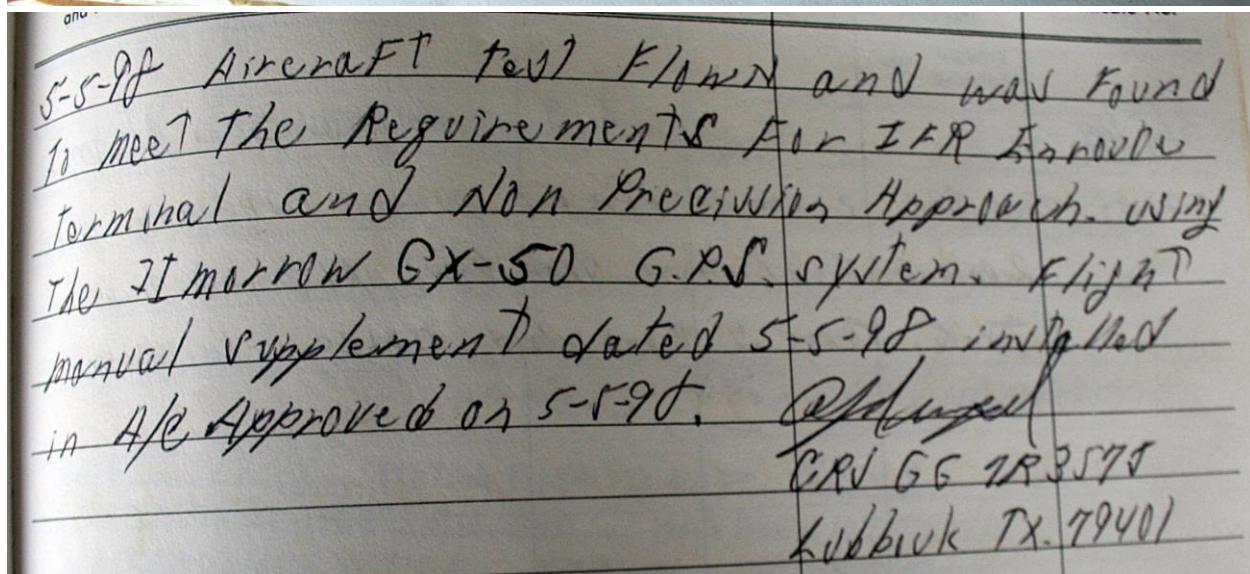 5-5-98 Aircraft test Flown and was Found
To meet The Requirements For IFR Enroute
Terminal and Non Precission Approach. using
The II morrow GX-50 G.P.S. system. Flight
manual supplement dated 5-5-98 installed
in A/C Approved on 5-5-98.
CRS GG 7R 357S
Lubbock TX. 79401